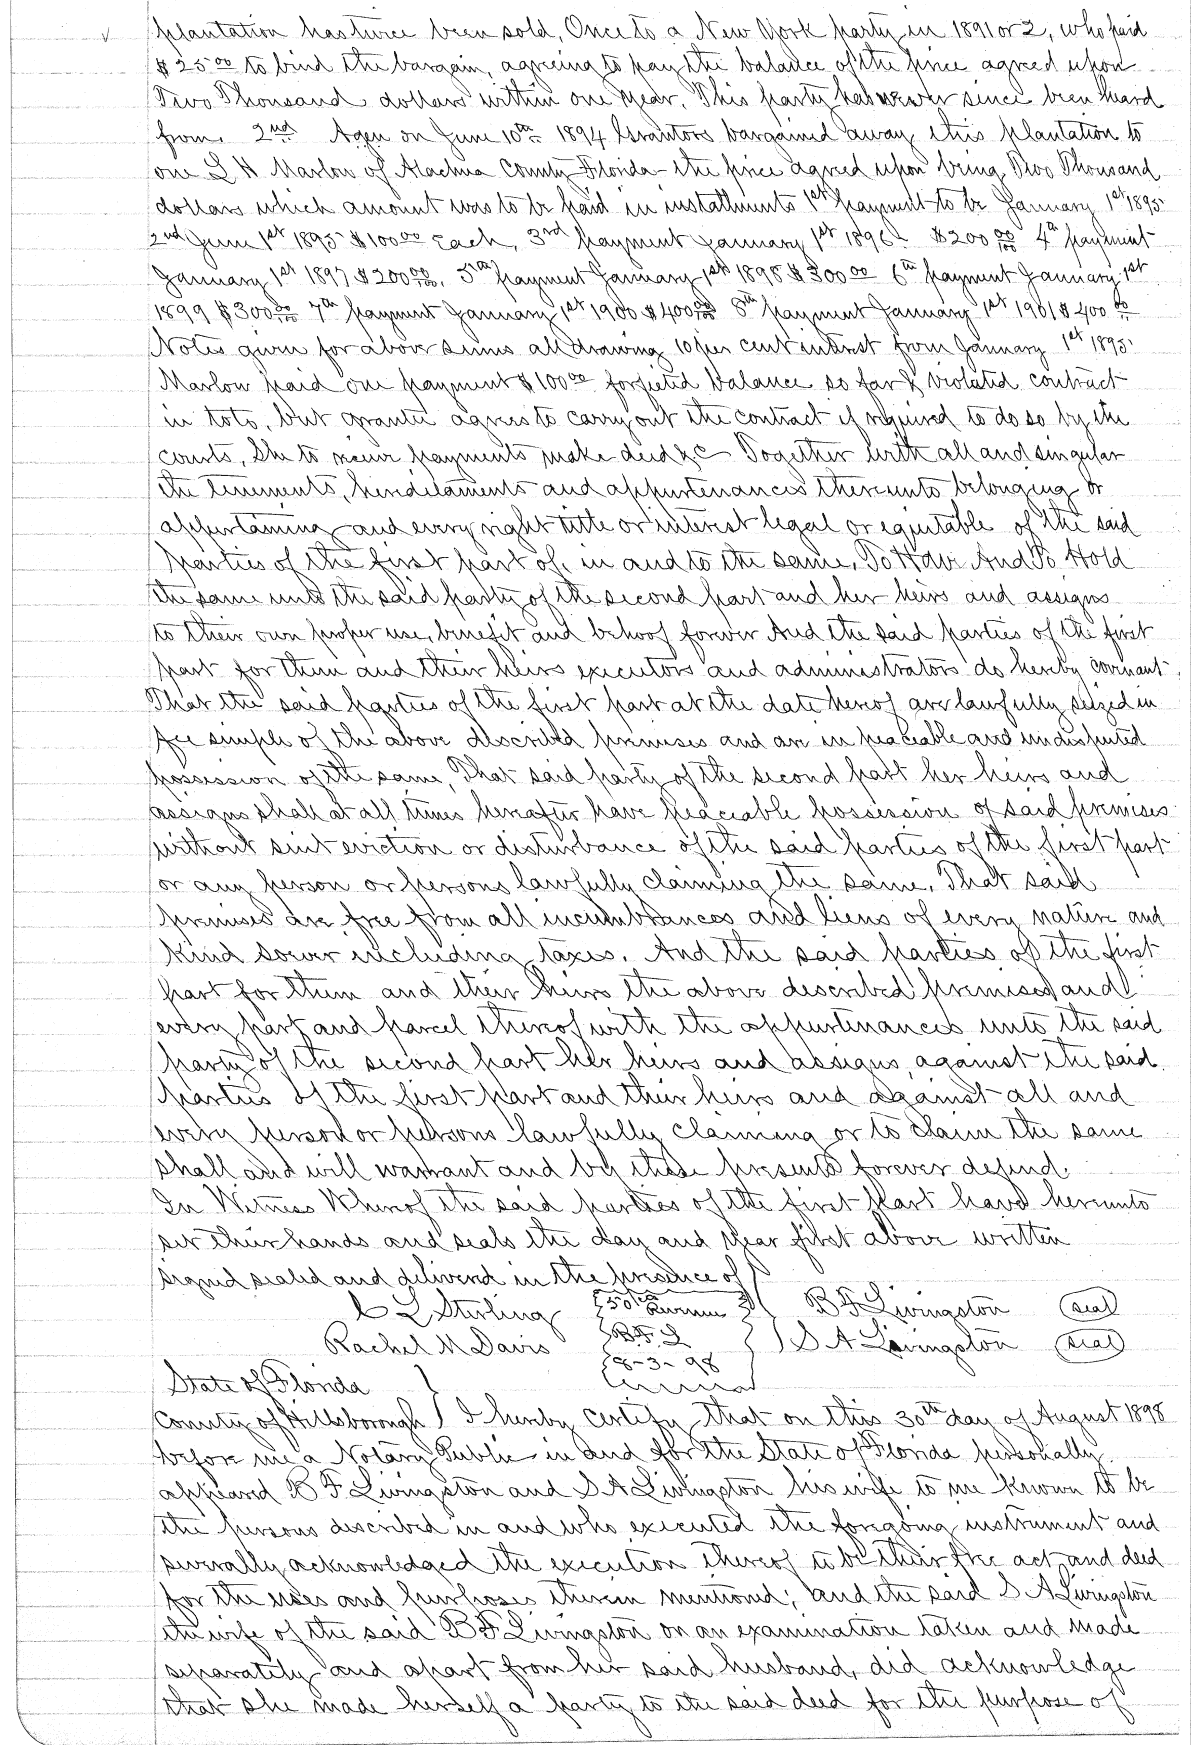 plantation has twice been sold, Once to a New York party in 1891 or 2, who paid
$25 00 to bind the bargain, agreeing to pay the balance of the price agreed upon
Two Thousand dollars within one year. This party has never since been heard
from. 2nd Again on June 10th 1894 Grantors bargained away this plantation to
one L H Marlow of Alachua County Florida - the price agreed upon being Two Thousand
dollars which amount was to be paid in installments 1st payment to be January 1st 1895
2nd June 1st 1895 $100 00 Each, 3rd payment January 1st 1896 $200 00/100 4th payment
January 1st 1897 $200 00/100, 5th payment January 1st 1898 $300 00 6th payment January 1st
1899 $300 00/100 7th payment January 1st 1900 $400 00/100 8th payment January 1st 1901 $400 00
Notes given for above sums all drawing 10 per cent interest from January 1st 1895
Marlow paid one payment $100 00 forfeited balance so far & violated contract
in toto, but grantee agrees to carry out the contract if required to do so by the
courts, She to receive payments make deed &c Together with all and singular
the tenements, hereditaments and appurtenances thereunto belonging or
appertaining and every right title or interest legal or equitable of the said
parties of the first part of, in and to the same, To Have And To Hold
the same unto the said party of the second part and her heirs and assigns
to their own proper use, benefit and behoof forever And the said parties of the first
part for them and their heirs executors and administrators do hereby covenant.
That the said parties of the first part at the date hereof are lawfully seized in
fee simple of the above described premises and are in peaceable and undisputed
possession of the same, That said party of the second part her heirs and
assigns shall at all times hereafter have peaceable possession of said premises
without suit eviction or disturbance of the said parties of the first part
or any person or persons lawfully claiming the same, That said
premises are free from all incumbrances and liens of every nature and
kind soever including taxes. And the said parties of the first
part for them and their heirs the above described premises and
every part and parcel thereof with the appurtenances unto the said
party of the second part her heirs and assigns, against the said
parties of the first part and their heirs and against all and
every person or persons lawfully claiming or to claim the same
shall and will warrant and by these presents forever defend.
In Witness Whereof the said parties of the first part have hereunto
set their hands and seals the day and year first above written
signed sealed and delivered in the presence of
C L Sterling 50 cts Revenue B F Livingston (seal)
Rachel M Davis B.F.L S A Livingston (seal)
8-3-98
State of Florida
County of Hillsborough I hereby certify that on this 30th day of August 1898
before me a Notary Public in and for the State of Florida personally
appeared B F Livingston and S A Livingston his wife to me known to be
the persons described in and who executed the foregoing instrument and
severally acknowledged the execution thereof to be their free act and deed
for the uses and purposes therein mentioned; and the said S A Livingston
the wife of the said B F Livingston on an examination taken and made
separately and apart from her said husband, did acknowledge
that she made herself a party to the said deed for the purpose of